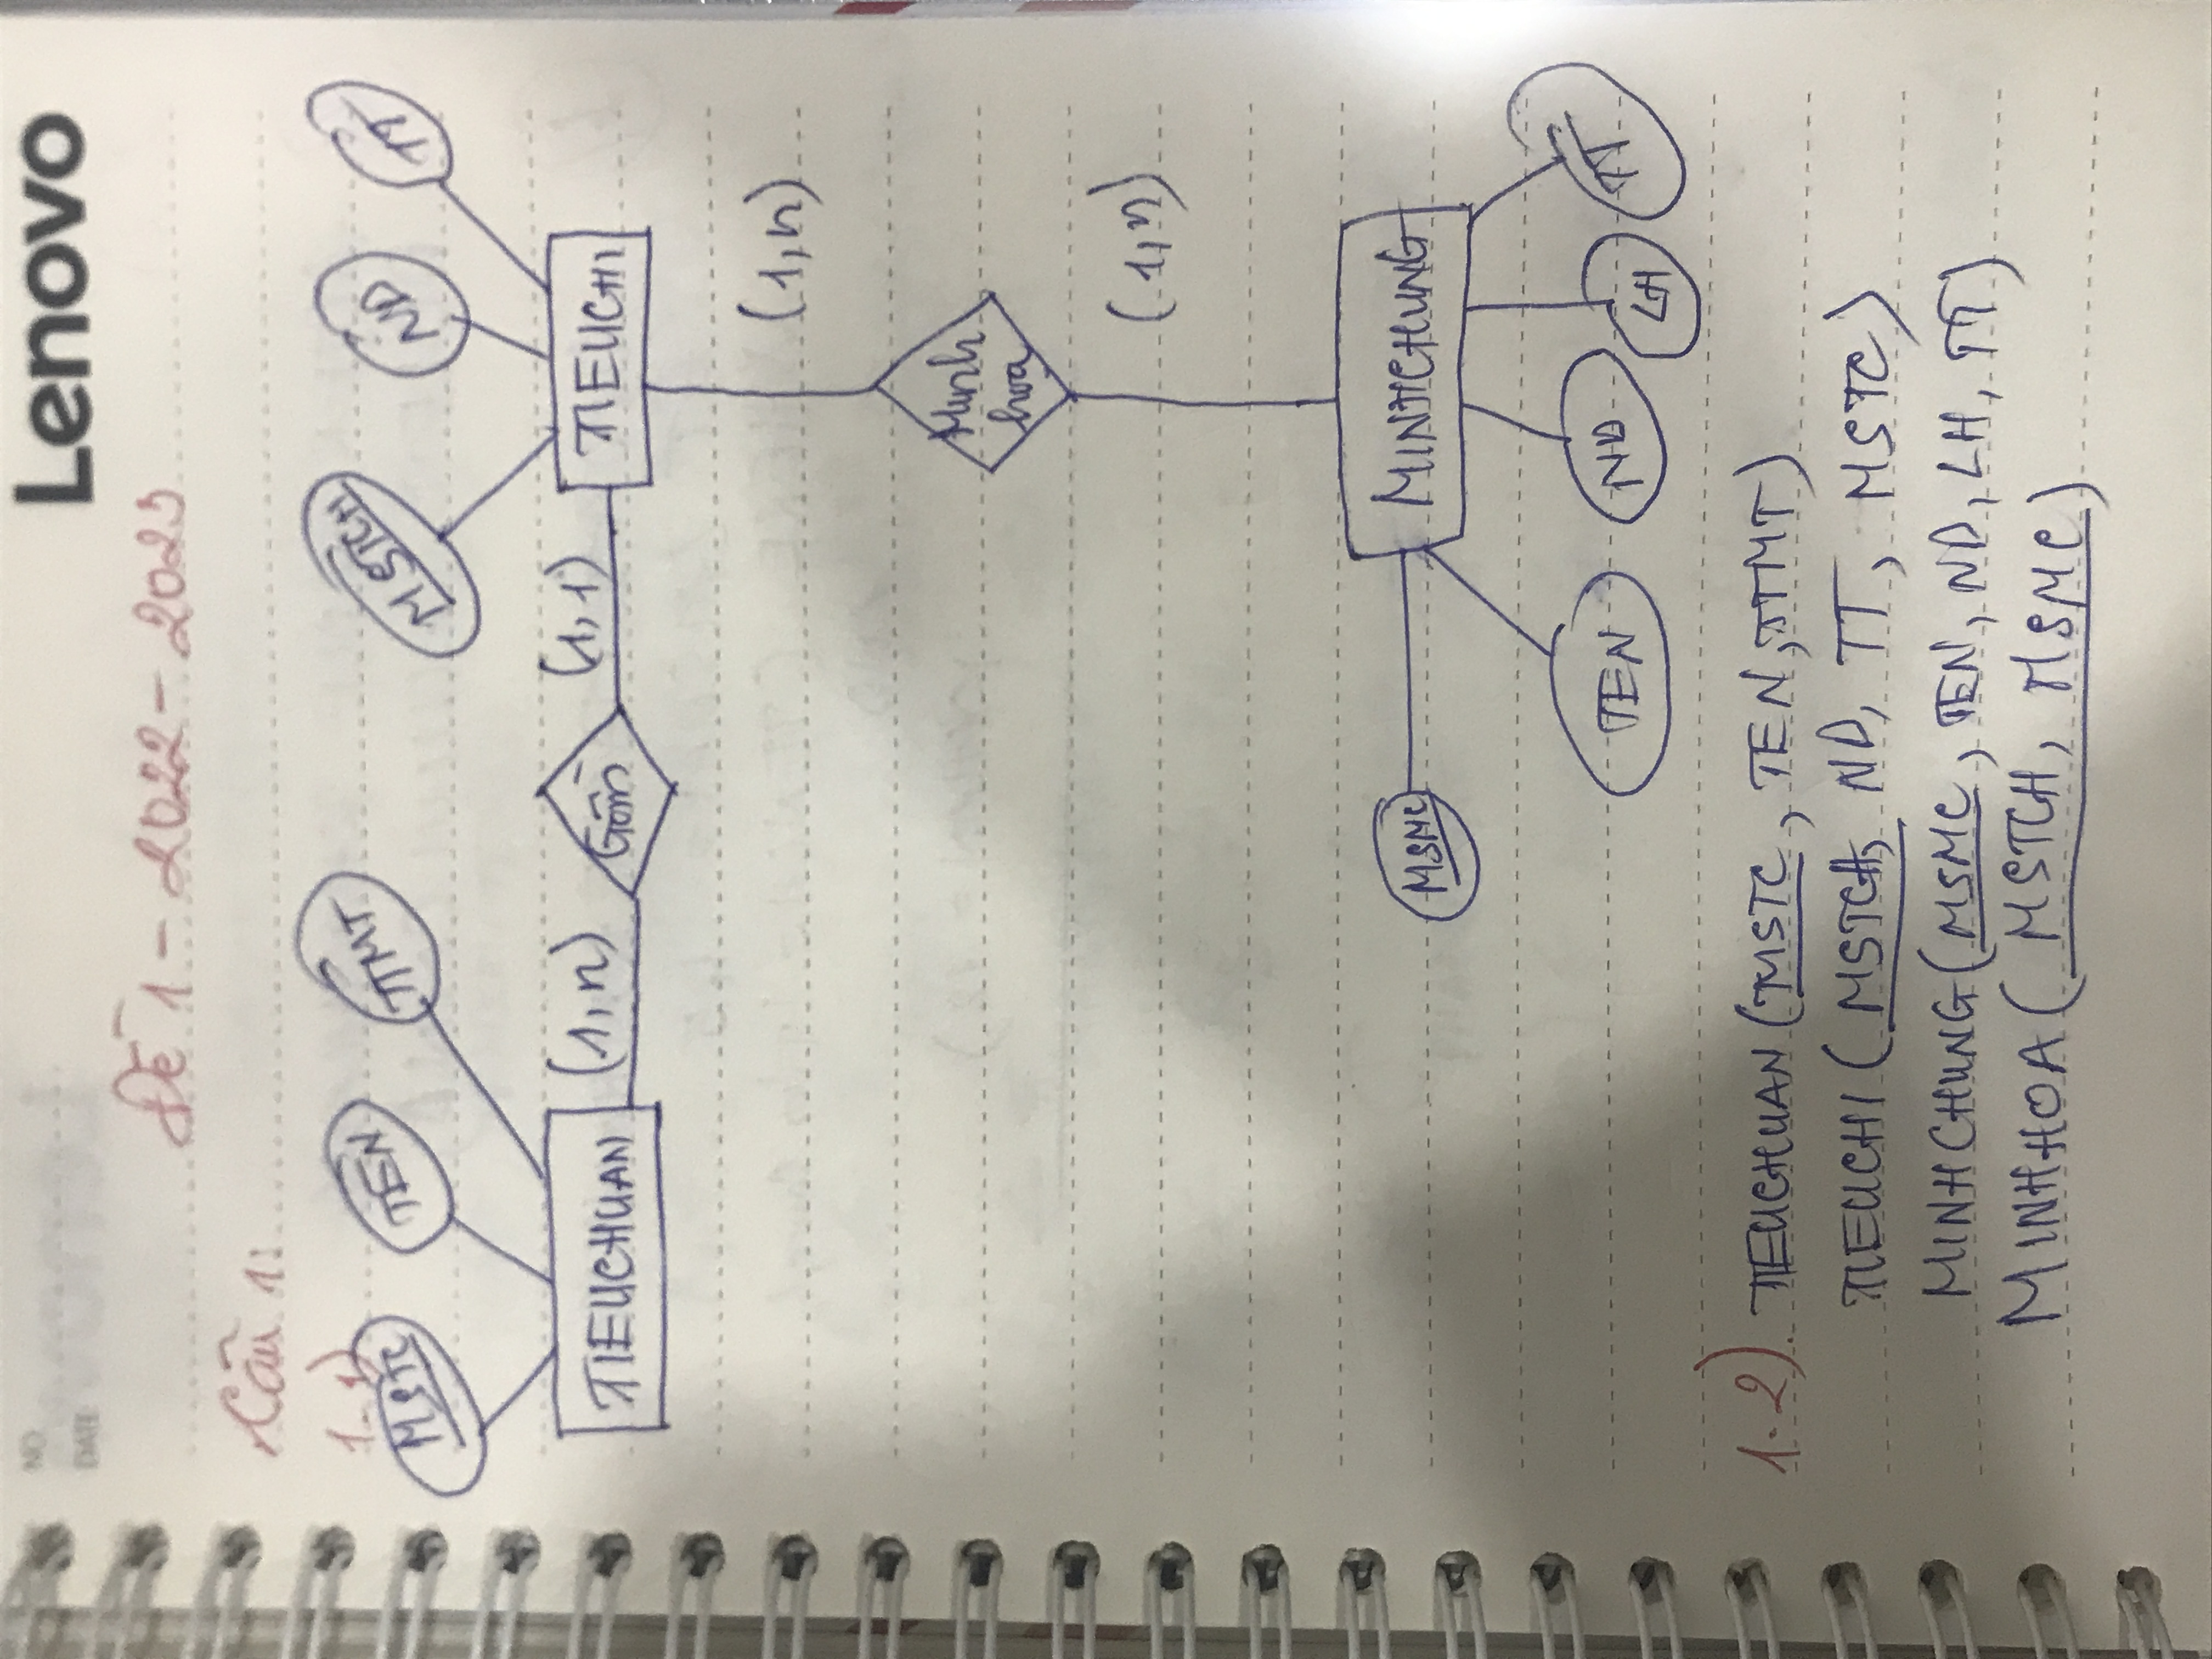 NO
DATE
Lenovo
Đề 1 - 2022 - 2023
Câu 1:
1.1)
MSTC TEN TTMT MSTCH ND TT
TIEUCHUAN (1,n) Gồm (1,1) TIEUCHI
(1,n)
Minh
hoạ
(1,n)
MSMC MINHCHUNG
TEN ND LH TT
1.2). TIEUCHUAN (MSTC, TEN, TTMT)
TIEUCHI (MSTCH, ND, TT, MSTC)
MINHCHUNG (MSMC, TEN, ND, LH, TT)
MINHHOA (MSTCH, MSMC)